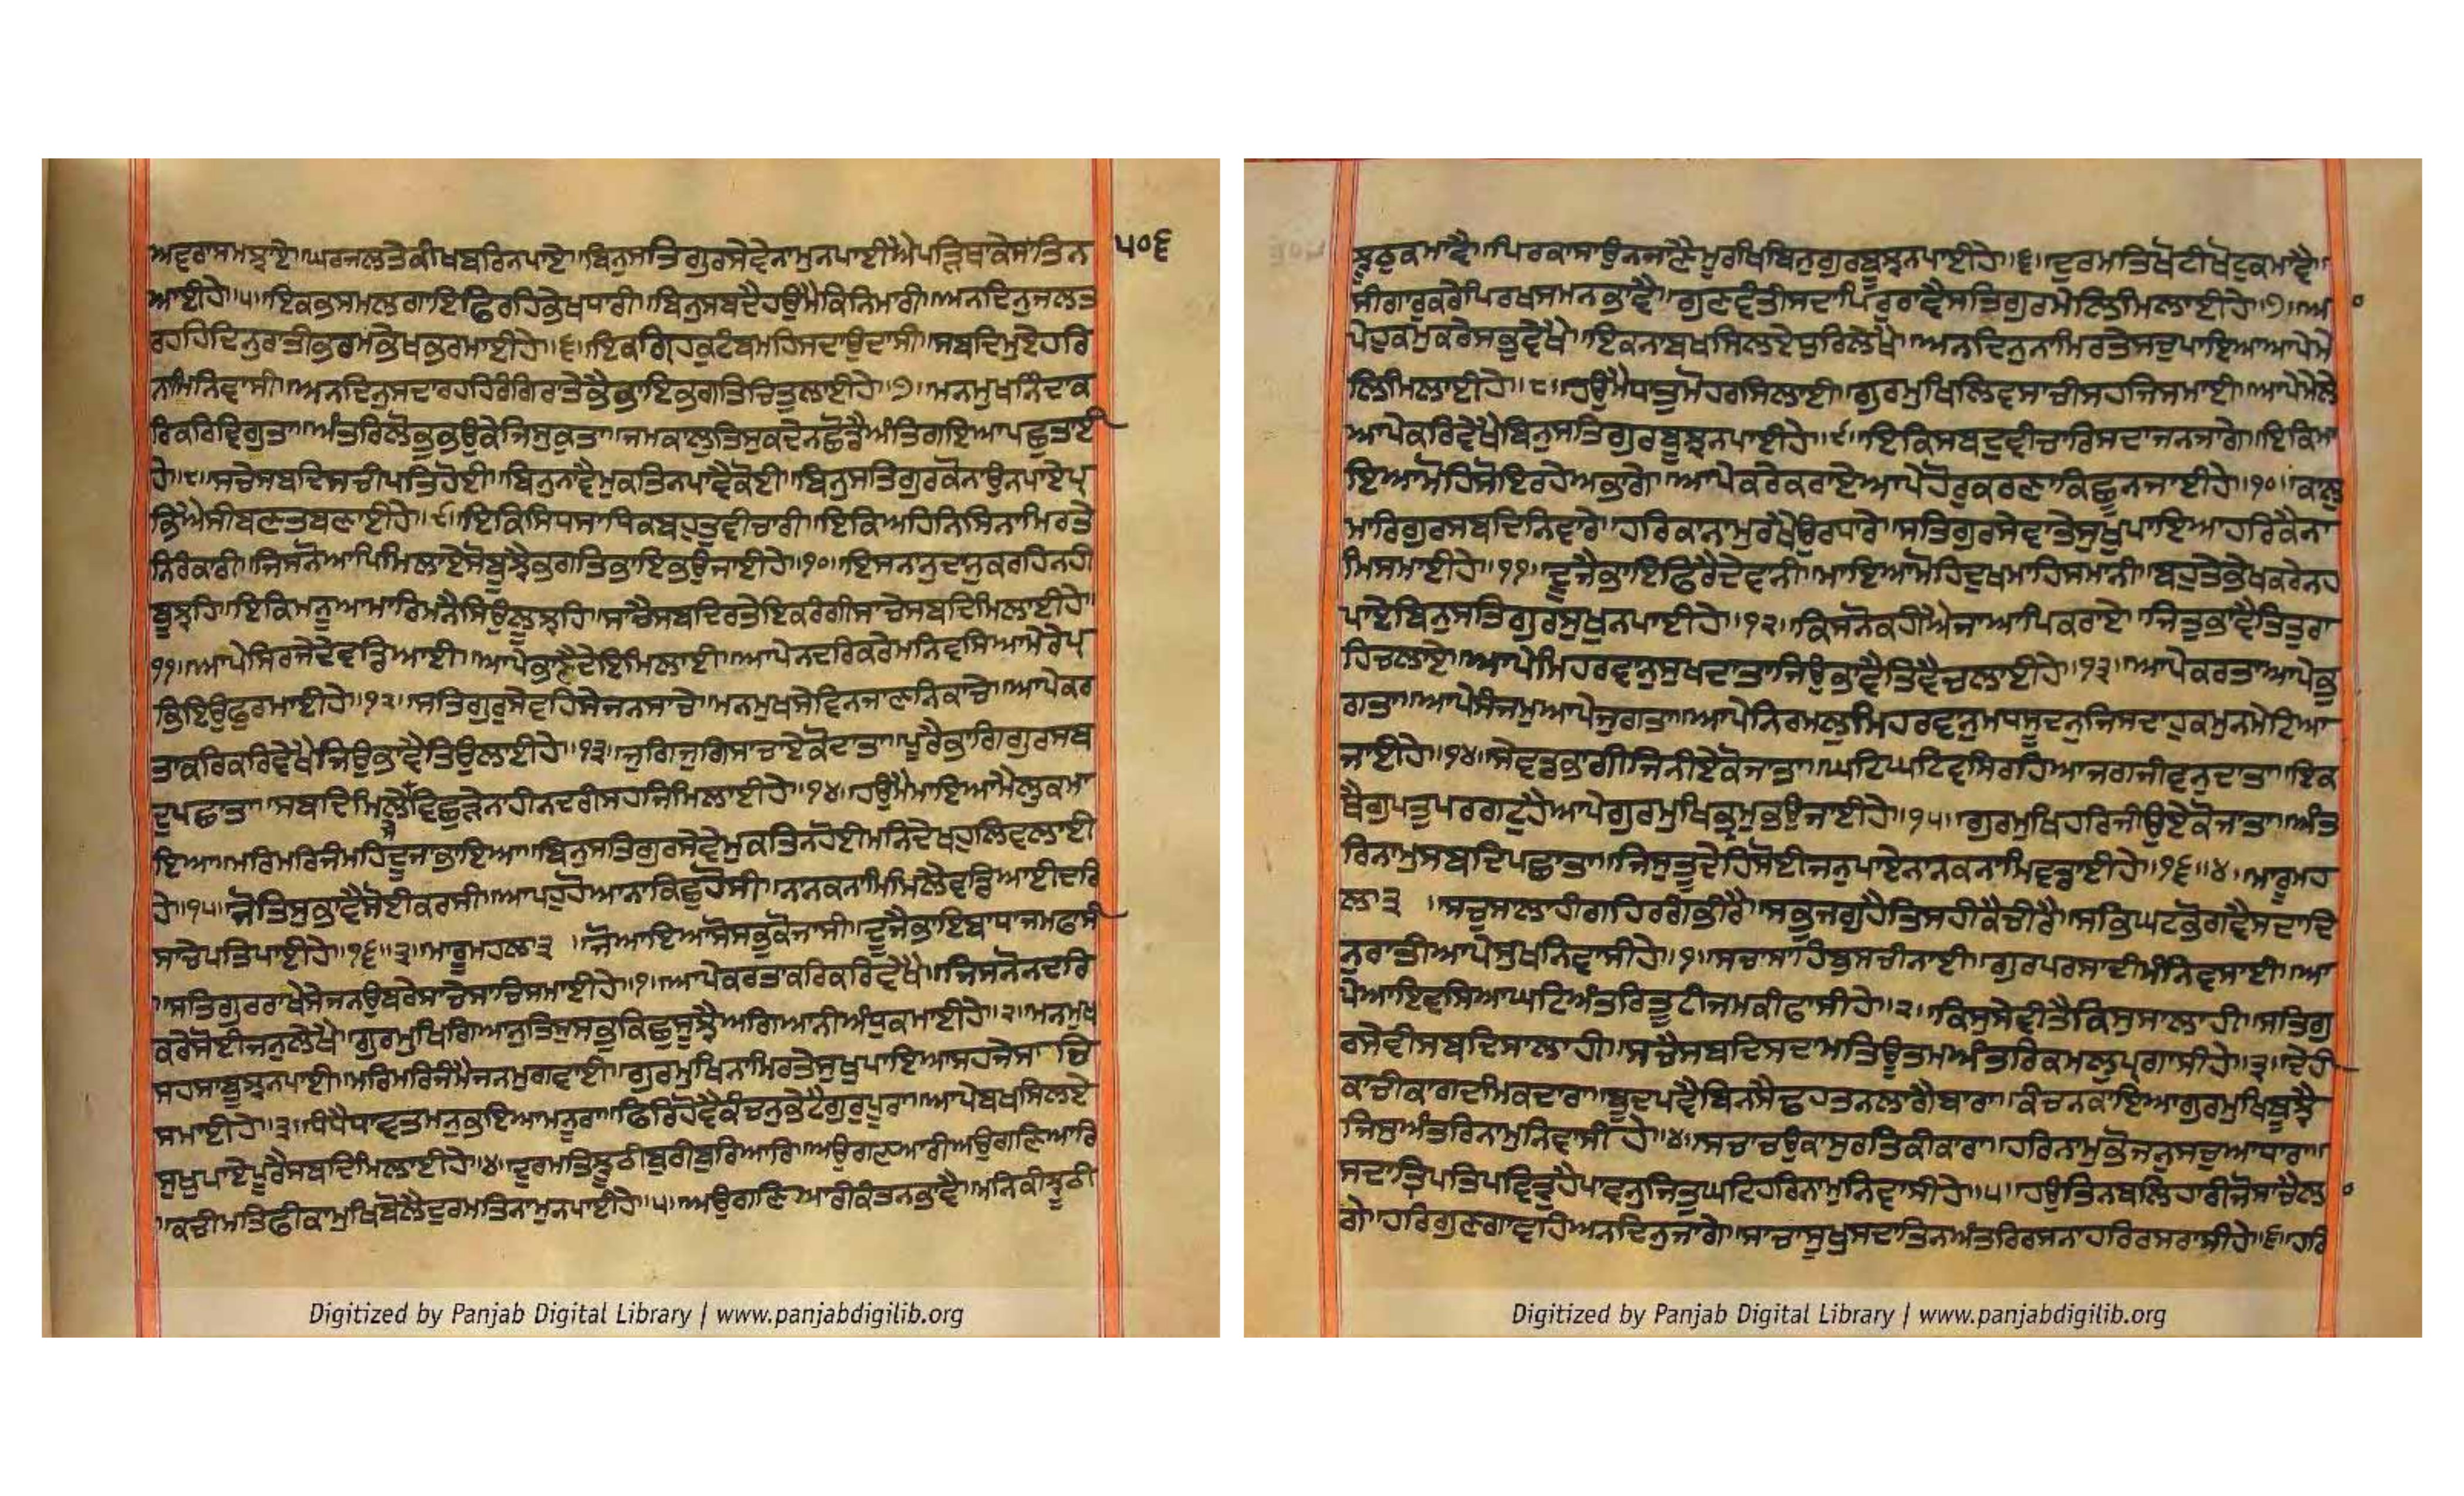 ਅਵਰਾਸਮਝਾਏ॥ਘਰਜਲਤੇਕੀਖਬਰਿਨਪਾਏ॥ਬਿਨੁਸਤਿਗੁਰਸੇਵੇਨਾਮੁਨਪਾਈਐਪੜਿਥਾਕੇਸਾਂਤਿਨ
੫੦੬
ਆਈਹੇ॥੫॥ਇਕਿਭਸਮਲਗਾਇਫਿਰਹਿਭੇਖਧਾਰੀ॥ਬਿਨੁਸਬਦੈਹਉਮੈਕਿਨਿਮਾਰੀ॥ਅਨਦਿਨੁਜਲਤ
ਰਹਹਿਦਿਨੁਰਾਤੀਭਰਮਿਭੇਖਭਰਮਾਈਹੇ॥੬॥ਇਕਿਗ੍ਰਿਹਕੁਟੰਬਮਹਿਸਦਾਉਦਾਸੀ॥ਸਬਦਿਮੁਏਹਰਿ
ਨਾਮਿਨਿਵਾਸੀ॥ਅਨਦਿਨੁਸਦਾਰਹਹਿਰੰਗਿਰਾਤੇਭੈਭਾਇਭਗਤਿਚਿਤੁਲਾਈਹੇ॥੭॥ਮਨਮੁਖਨਿੰਦਾਕ
ਰਿਕਰਿਵਿਗੁਤਾ॥ਅੰਤਰਿਲੋਭੁਭਉਕੇਜਿਸੁਕੁਤਾ॥ਜਮਕਾਲੁਤਿਸੁਕਦੇਨਛੋਡੈਅੰਤਿਗਇਆਪਛੁਤਾਈ
ਹੇ॥੮॥ਸਚੇਸਬਦਿਸਚੀਪਤਿਹੋਈ॥ਬਿਨੁਨਾਵੈਮੁਕਤਿਨਪਾਵੈਕੋਈ॥ਬਿਨੁਸਤਿਗੁਰਕੋਨਾਉਨਪਾਏਪ੍ਰ
ਭਿਐਸੀਬਣਤਬਣਾਈਹੇ॥੯॥ਇਕਿਸਿਧਸਾਧਿਕਬਹੁਤੁਵੀਚਾਰੀ॥ਇਕਿਅਹਿਨਿਸਿਨਾਮਿਰਤੇ
ਨਿਰੰਕਾਰੀ॥ਜਿਸਨੋਆਪਿਮਿਲਾਏਸੋਬੂਝੈਭਗਤਿਭਾਇਭਉਜਾਈਹੇ॥੧੦॥ਇਸਨਾਨੁਦਾਨੁਕਰਹਿਨਹੀ
ਬੂਝਹਿ॥ਇਕਿਮਨੂਆਮਾਰਿਮਨੈਸਿਉਲੂਝਹਿ॥ਸਾਚੈਸਬਦਿਰਤੇਇਕਰੰਗੀਸਾਚੇਸਬਦਿਮਿਲਾਈਹੇ॥
੧੧॥ਆਪੇਸਿਰਜੇਦੇਵਡਿਆਈ॥ਆਪੇਭਾਣੈਦੇਇਮਿਲਾਈ॥ਆਪੇਨਦਰਿਕਰੇਮਨਿਵਸਿਆਮੇਰੇਪ੍ਰ
ਭਿਇਉਫੁਰਮਾਈਹੇ॥੧੨॥ਸਤਿਗੁਰੁਸੇਵਹਿਸੇਜਨਸਾਚੇ॥ਮਨਮੁਖਸੇਵਿਨਜਾਣਨਿਕਾਚੇ॥ਆਪੇਕਰ
ਤਾਕਰਿਕਰਿਵੇਖੈਜਿਉਭਾਵੈਤਿਉਲਾਈਹੇ॥੧੩॥ਜੁਗਿਜੁਗਿਸਾਚਾਏਕੋਦਾਤਾ॥ਪੂਰੈਭਾਗਿਗੁਰਸਬ
ਦੁਪਛਾਤਾ॥ਸਬਦਿਮਿਲੇਸੇਵਿਛੁੜੇਨਾਹੀਨਦਰੀਸਹਜਿਮਿਲਾਈਹੇ॥੧੪॥ਹਉਮੈਮਾਇਆਮੈਲੁਕਮਾ
ਇਆ॥ਮਰਿਮਰਿਜੰਮਹਿਦੂਜਾਭਾਇਆ॥ਬਿਨੁਸਤਿਗੁਰਸੇਵੇਮੁਕਤਿਨਹੋਈਮਨਿਦੇਖਹੁਲਿਵਲਾਈ
ਹੇ॥੧੫॥ਜੋਤਿਸੁਭਾਵੈਸੋਈਕਰਸੀ॥ਆਪਹੁਹੋਆਨਾਕਿਛੁਹੋਸੀ॥ਨਾਨਕਨਾਮਿਮਿਲੈਵਡਿਆਈਦਰਿ
ਸਾਚੇਪਤਿਪਾਈਹੇ॥੧੬॥੩॥ਮਾਰੂਮਹਲਾ੩ ॥ਜੋਆਇਆਸੋਸਭੁਕੋਜਾਸੀ॥ਦੂਜੈਭਾਇਬਾਧਾਜਮਫਾਸੀ
॥ਸਤਿਗੁਰਰਾਖੇਸੇਜਨਉਬਰੇਸਾਚੇਸਾਚਿਸਮਾਈਹੇ॥੧॥ਆਪੇਕਰਤਾਕਰਿਕਰਿਵੇਖੈ॥ਜਿਸਨੋਨਦਰਿ
ਕਰੇਸੋਈਜਨੁਲੇਖੈ॥ਗੁਰਮੁਖਿਗਿਆਨੁਤਿਸੁਸਭੁਕਿਛੁਸੂਝੈਅਗਿਆਨੀਅੰਧੁਕਮਾਈਹੇ॥੨॥ਮਨਮੁਖ
ਸਹਸਾਬੂਝਨਪਾਈ॥ਮਰਿਮਰਿਜੰਮੈਜਨਮੁਗਵਾਈ॥ਗੁਰਮੁਖਿਨਾਮਿਰਤੇਸੁਖੁਪਾਇਆਸਹਜੇਸਾਚਿ
ਸਮਾਈਹੇ॥੩॥ਧੰਧੈਧਾਵਤਮਨੁਭਇਆਮਨੂਰਾ॥ਫਿਰਿਹੋਵੈਕੰਚਨੁਭੇਟੈਗੁਰੁਪੂਰਾ॥ਆਪੇਬਖਸਿਲਏ
ਸੁਖੁਪਾਏਪੂਰੈਸਬਦਿਮਿਲਾਈਹੇ॥੪॥ਦੁਰਮਤਿਝੂਠੀਬੁਰੀਬੁਰਿਆਰਿ॥ਅਉਗਣਿਆਰੀਅਉਗਣਿਆਰਿ
॥ਕਚੀਮਤਿਫੀਕਾਮੁਖਿਬੋਲੈਦੁਰਮਤਿਨਾਮੁਨਪਾਈਹੇ॥੫॥ਅਉਗਣਿਆਰੀਕੰਤਨਭਾਵੈ॥ਮਨਿਕੀਝੂਠੀ
ਝੂਠੁਕਮਾਵੈ॥ਪਿਰਕਾਸਾਉਨਜਾਣੈਮੂਰਖਿਬਿਨੁਗੁਰਬੂਝਨਪਾਈਹੇ॥੬॥ਦੁਰਮਤਿਖੋਟੀਖੋਟੁਕਮਾਵੈ॥
ਸੀਗਾਰੁਕਰੇਪਿਰਖਸਮਨਭਾਵੈ॥ਗੁਣਵੰਤੀਸਦਾਪਿਰੁਰਾਵੈਸਤਿਗੁਰਮੇਲਿਮਿਲਾਈਹੇ॥੭॥ਆ
ਪੇਹੁਕਮੁਕਰੇਸਭੁਵੇਖੈ॥ਇਕਨਾਬਖਸਿਲਏਧੁਰਿਲੇਖੈ॥ਅਨਦਿਨੁਨਾਮਿਰਤੇਸਚੁਪਾਇਆਆਪੇਮੇ
ਲਿਮਿਲਾਈਹੇ॥੮॥ਹਉਮੈਧਾਤੁਮੋਹਰਸਿਲਾਈ॥ਗੁਰਮੁਖਿਲਿਵਸਾਚੀਸਹਜਿਸਮਾਈ॥ਆਪੇਮੇਲੈ
ਆਪੇਕਰਿਵੇਖੈਬਿਨੁਸਤਿਗੁਰਬੂਝਨਪਾਈਹੇ॥੯॥ਇਕਿਸਬਦੁਵੀਚਾਰਿਸਦਾਜਨਜਾਗੇ॥ਇਕਿਮਾ
ਇਆਮੋਹਿਸੋਇਰਹੇਅਭਾਗੇ॥ਆਪੇਕਰੇਕਰਾਏਆਪੇਹੋਰੁਕਰਣਾਕਿਛੂਨਜਾਈਹੇ॥੧੦॥ਕਾਲੁ
ਮਾਰਿਗੁਰਸਬਦਿਨਿਵਾਰੇ॥ਹਰਿਕਾਨਾਮੁਰਖੈਉਰਧਾਰੇ॥ਸਤਿਗੁਰਸੇਵਾਤੇਸੁਖੁਪਾਇਆਹਰਿਕੈਨਾ
ਮਿਸਮਾਈਹੇ॥੧੧॥ਦੂਜੈਭਾਇਫਿਰੈਦੇਵਾਨੀ॥ਮਾਇਆਮੋਹਿਦੁਖਮਾਹਿਸਮਾਨੀ॥ਬਹੁਤੇਭੇਖਕਰੇਨਹ
ਪਾਏਬਿਨੁਸਤਿਗੁਰਸੁਖੁਨਪਾਈਹੇ॥੧੨॥ਕਿਸਨੋਕਹੀਐਜਾਆਪਿਕਰਾਏ॥ਜਿਤੁਭਾਵੈਤਿਤੁਰਾ
ਹਿਚਲਾਏ॥ਆਪੇਮਿਹਰਵਾਨੁਸੁਖਦਾਤਾਜਿਉਭਾਵੈਤਿਵੈਚਲਾਈਹੇ॥੧੩॥ਆਪੇਕਰਤਾਆਪੇਭੁ
ਗਤਾ॥ਆਪੇਸੰਜਮੁਆਪੇਜੁਗਤਾ॥ਆਪੇਨਿਰਮਲੁਮਿਹਰਵਾਨੁਮਧਸੂਦਨੁਜਿਸਦਾਹੁਕਮੁਨਮੇਟਿਆ
ਜਾਈਹੇ॥੧੪॥ਸੇਵਡਭਾਗੀਜਿਨੀਏਕੋਜਾਤਾ॥ਘਟਿਘਟਿਵਸਿਰਹਿਆਜਗਜੀਵਨੁਦਾਤਾ॥ਇਕ
ਥੈਗੁਪਤੁਪਰਗਟੁਹੈਆਪੇਗੁਰਮੁਖਿਭ੍ਰਮੁਭਉਜਾਈਹੇ॥੧੫॥ਗੁਰਮੁਖਿਹਰਿਜੀਉਏਕੋਜਾਤਾ॥ਅੰਤ
ਰਿਨਾਮੁਸਬਦਿਪਛਾਤਾ॥ਜਿਸੁਤੂਦੇਹਿਸੋਈਜਨੁਪਾਏਨਾਨਕਨਾਮਿਵਡਾਈਹੇ॥੧੬॥੪॥ਮਾਰੂਮਹ
ਲਾ੩ ॥ਸਚੁਸਾਲਾਹੀਗਹਿਰਗੰਭੀਰੈ॥ਸਭੁਜਗੁਹੈਤਿਸਹੀਕੈਚੀਰੈ॥ਸਭਿਘਟਭੋਗਵੈਸਦਾਦਿ
ਨੁਰਾਤੀਆਪੇਸੂਖਨਿਵਾਸੀਹੇ॥੧॥ਸਚਾਸਾਹਿਬੁਸਚੀਨਾਈ॥ਗੁਰਪਰਸਾਦੀਮੰਨਿਵਸਾਈ॥ਆ
ਪੇਆਇਵਸਿਆਘਟਿਅੰਤਰਿਤੂਟੀਜਮਕੀਫਾਸੀਹੇ॥੨॥ਕਿਸੁਸੇਵੀਤੈਕਿਸੁਸਾਲਾਹੀ॥ਸਤਿਗੁ
ਰਸੇਵੀਸਬਦਿਸਾਲਾਹੀ॥ਸਚੈਸਬਦਿਸਦਾਮਤਿਊਤਮਅੰਤਰਿਕਮਲੁਪ੍ਰਗਾਸੀਹੇ॥੩॥ਦੇਹੀ
ਕਾਚੀਕਾਗਦਮਿਕਦਾਰਾ॥ਬੂੰਦਪਵੈਬਿਨਸੈਢਹਤਨਲਾਗੈਬਾਰਾ॥ਕੰਚਨਕਾਇਆਗੁਰਮੁਖਿਬੂਝੈ
ਜਿਸੁਅੰਤਰਿਨਾਮੁਨਿਵਾਸੀ ਹੇ॥੪॥ਸਚਾਚਉਕਾਸੁਰਤਿਕੀਕਾਰਾ॥ਹਰਿਨਾਮੁਭੋਜਨੁਸਚੁਆਧਾਰਾ॥
ਸਦਾਤ੍ਰਿਪਤਿਪਵਿਤ੍ਰੁਹੈਪਾਵਨੁਜਿਤੁਘਟਿਹਰਿਨਾਮੁਨਿਵਾਸੀਹੇ॥੫॥ਹਉਤਿਨਬਲਿਹਾਰੀਜੋਸਾਚੈਲਾ
ਗੇ॥ਹਰਿਗੁਣਗਾਵਹਿਅਨਦਿਨੁਜਾਗੇ॥ਸਾਚਾਸੂਖੁਸਦਾਤਿਨਅੰਤਰਿਰਸਨਾਹਰਿਰਸਰਾਸੀਹੇ॥੬॥ਹਰਿ
Digitized by Panjab Digital Library | www.panjabdigilib.org
Digitized by Panjab Digital Library | www.panjabdigilib.org